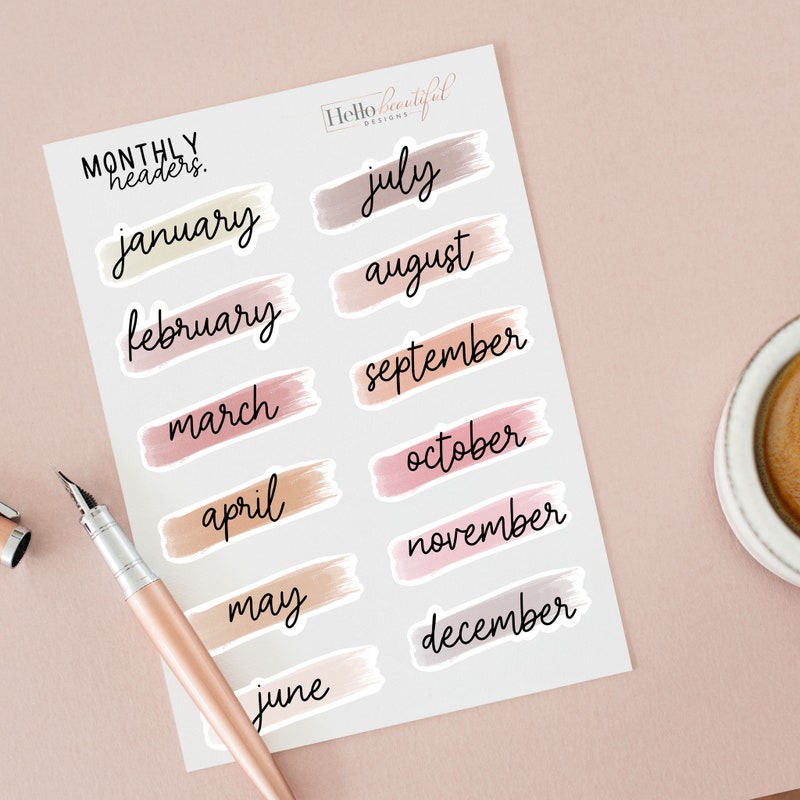 MONTHLY
headers.
Hello beautiful
DESIGNS
january
february
march
april
may
june
july
august
september
october
november
december